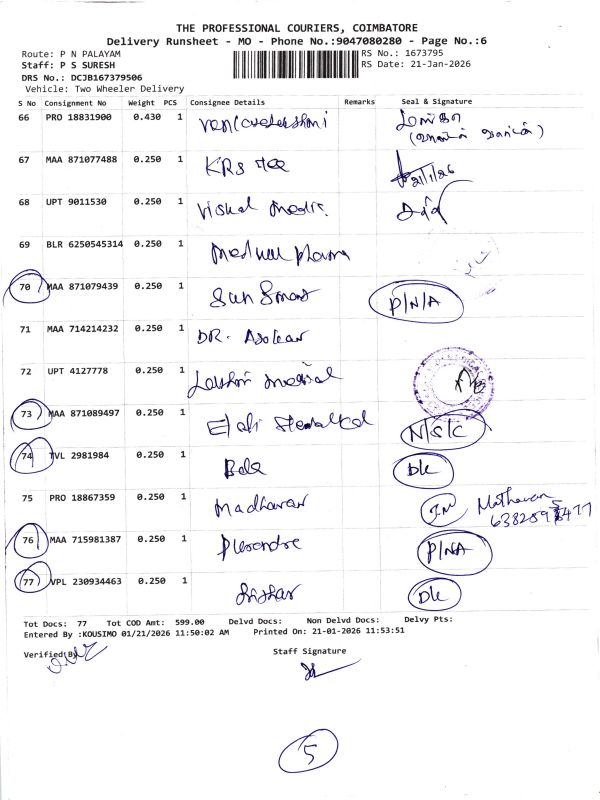 THE PROFESSIONAL COURIERS, COIMBATORE
Delivery Runsheet - MO - Phone No.:9047080280 - Page No.:6
Route: P N PALAYAM
RS No.: 1673795
Staff: P S SURESH
RS Date: 21-Jan-2026
DRS No.: DCJB167379506
Vehicle: Two Wheeler Delivery
S No Consignment No Weight PCS Consignee Details Remarks Seal & Signature
66 PRO 18831900 0.430 1
67 MAA 871077488 0.250 1 KRS 21/1/26
68 UPT 9011530 0.250 1
69 BLR 6250545314 0.250 1 pharma
70 MAA 871079439 0.250 1 P/N/A
71 MAA 714214232 0.250 1 DR.
72 UPT 4127778 0.250 1 Lakshmi medical
73 MAA 871089497 0.250 1 N/S/C
74 TVL 2981984 0.250 1 D/L
75 PRO 18867359 0.250 1 Madhavan Mathavan
76 MAA 715981387 0.250 1 P/NA
77 VPL 230934463 0.250 1 D/L
Tot Docs: 77 Tot COD Amt: 599.00 Delvd Docs: Non Delvd Docs: Delvy Pts:
Entered By :KOUSIMO 01/21/2026 11:50:02 AM Printed On: 21-01-2026 11:53:51
Verified By
Staff Signature
5